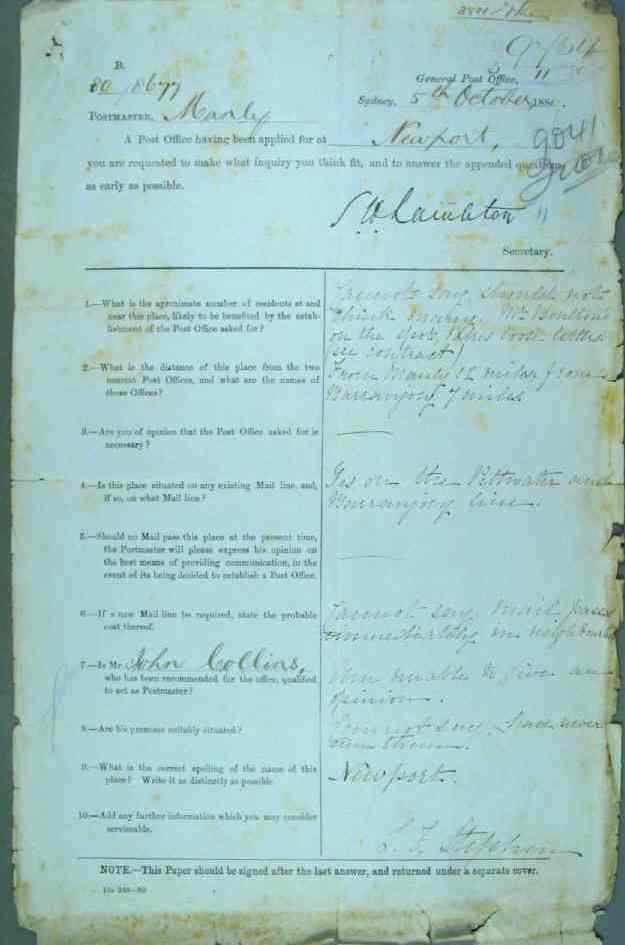 B.
80/8677
General Post Office,
Sydney, 5th October, 188 .
POSTMASTER, Manly
A Post Office having been applied for at Newport,
you are requested to make what inquiry you think fit, and to answer the appended questions
as early as possible.
S W Lambton
Secretary.
1.—What is the aproximate number of residents at and
near this place, likely to be benefited by the estab-
lishment of the Post Office asked for?
Cannot say should not
think many. Mr Boulton's
on the spot (this took
see contract)
2.—What is the distance of this place from the two
nearest Post Offices, and what are the names of
those Offices?
From Manly 12 miles from
Barranjoey 7 miles
3.—Are you of opinion that the Post Office asked for is
necessary?
4.—Is this place situated on any existing Mail line, and,
if so, on what Mail line?
Yes on the Pittwater and
Barranjoey line.
5.—Should no Mail pass this place at the present time,
the Postmaster will please express his opinion on
the best means of providing communication, in the
event of its being decided to establish a Post Office.
6.—If a new Mail line be required, state the probable
cost thereof.
Cannot say mail passes
immediately in
7.—Is Mr. John Collins,
who has been recommended for the office, qualified
to act as Postmaster?
Am unable to give an
opinion.
8.—Are his premises suitably situated?
Cannot say have never
seen them.
9.—What is the correct spelling of the name of this
place? Write it as distinctly as possible
Newport.
10.—Add any further information which you may consider
serviceable.
Stephen
NOTE.—This Paper should be signed after the last answer, and returned under a separate cover.